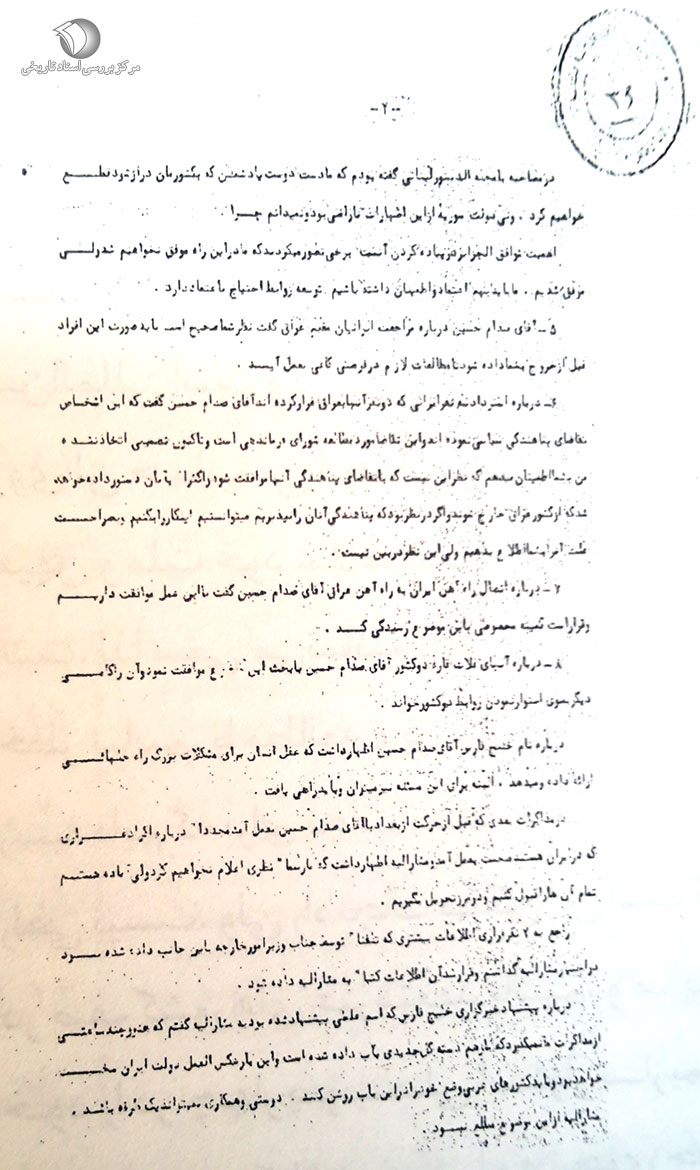 مرکز بررسی اسناد تاریخی
۳۶
-۲-
در مصاحبه با مجله الدستور لبنانی گفته بودم که ما دست دوست یا دشمن که بکشورمان دراز شود قطع
خواهیم کرد . ولی دولت سوریه از این اظهارات ناراضی بود و نمیدانم چرا .
اهمیت توافق الجزایر در پیاده کردن آنست برخی تصور میکردند که ما در این راه موفق نخواهیم شد ولی
موفق شدیم . ما باید بهم اعتماد و اطمینان داشته باشیم . توسعه روابط احتیاج باعتماد دارد .
۵ - آقای صدام حسین درباره مراجعت ایرانیان مقیم عراق گفت نظر شما صحیح است باید صورت این افراد
قبل از خروج بشما داده شود تا مطالعات لازم در فرصتی کافی بعمل آیسد .
۶ - درباره استرداد نفرایرانی که دو نفر آنها بعراق فرار کرده اند آقای صدام حسین گفت که این اشخاص
تقاضای پناهندگی سیاسی نموده اند و این تقاضا مورد مطالعه شورای فرماندهی است و تاکنون تصمیمی اتخاذ نشده
من بشما اطمینان میدهم که نظر این نیست که با تقاضای پناهندگی آنها موافقت شود و اکثرا" بآنان دستور داده خواهد
شد که از کشور عراق خارج شوند و اگر در نظر بود که پناهندگی آنان را بپذیریم میتوانستیم اینکار را بکنیم و بصراحت
علت آنرا بشما اطلاع بدهیم ولی این نظر در بین نیست .
۷ - درباره اتصال راه آهن ایران به راه آهن عراق آقای صدام حسین گفت با این عمل موافقت داریم
و قرار است کمیته مخصوصی باین موضوع رسیدگی کند .
۸ - درباره فلات قاره دو کشور آقای صدام حسین با بحث این موافقت نمود و آن را گامی
دیگر بسوی استوار نمودن روابط دو کشور خواند .
درباره نام خلیج فارس آقای صدام حسین اظهار داشت که عقل انسان برای مشکلات بزرگ راه حلهائی
ارائه داده و میدهد . البته برای این مسئله نیز میتوان و باید راهی یافت .
در مذاکرات بعدی که قبل از حرکت از بغداد با آقای صدام حسین بعمل آمد مجددا" درباره اکراد عراقی
که در ایران هستند صحبت بعمل آمد و مشارالیه اظهار داشت که رسما" نظری اعلام نخواهیم کرد ولی آماده هستیم
تمام آن ها را قبول کنیم و در مرز تحویل بگیریم .
راجع به ۲ نفر فراری اطلاعات بیشتری که تلفنا" توسط جناب وزیر امور خارجه باین جانب داده شده بود
در اختیار مشارالیه گذاشتم و قرار شد آن اطلاعات کتبا" به مشارالیه داده شود .
درباره پیشنهاد خبرگزاری خلیج فارس که اسم پیشنهاد شده بود به مشارالیه گفتم که هنوز چند ساعتی
از مذاکرات ما نمیگذرد که بازهم دسته گل جدیدی بآب داده شده است و این بار عکس العمل دولت ایران سخت
خواهد بود و باید کشورهای عربی وضع خود را در این باب روشن کنند . دوستی و همکاری نمیتواند یک طرفه باشد .
مشارالیه از این موضوع مطلع نبود .